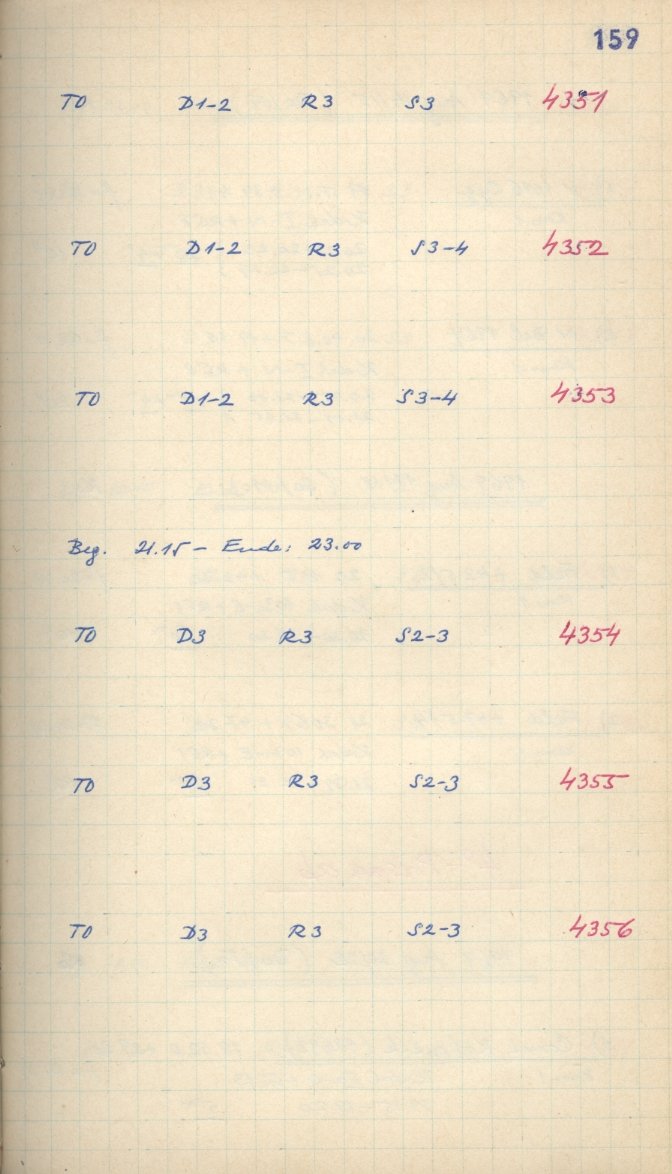 159
TO D1-2 R3 S3 4351
TO D1-2 R3 S3-4 4352
TO D1-2 R3 S3-4 4353
Beg. 21.15 – Ende: 23.00
TO D3 R3 S2-3 4354
TO D3 R3 S2-3 4355
TO D3 R3 S2-3 4356